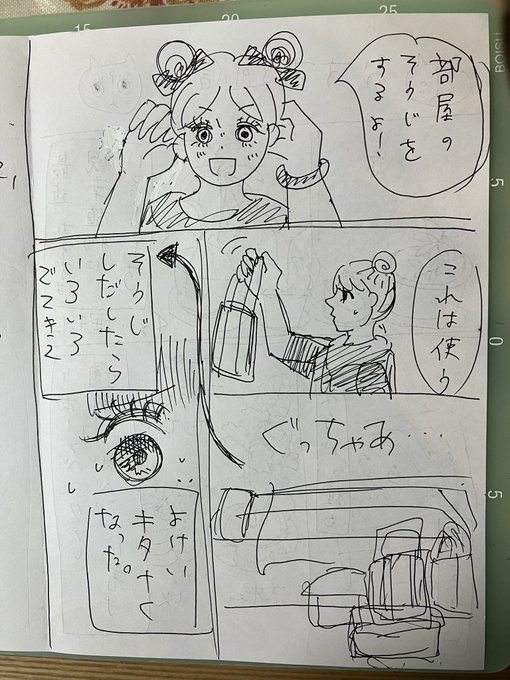 部屋の
そうじを
するよ!
これは使う
ぐっちゃあ・・・
そうじ
しだしたら
いろいろ
でてきて
よけい
キタナく
なった。
15
20
25
5
0
5